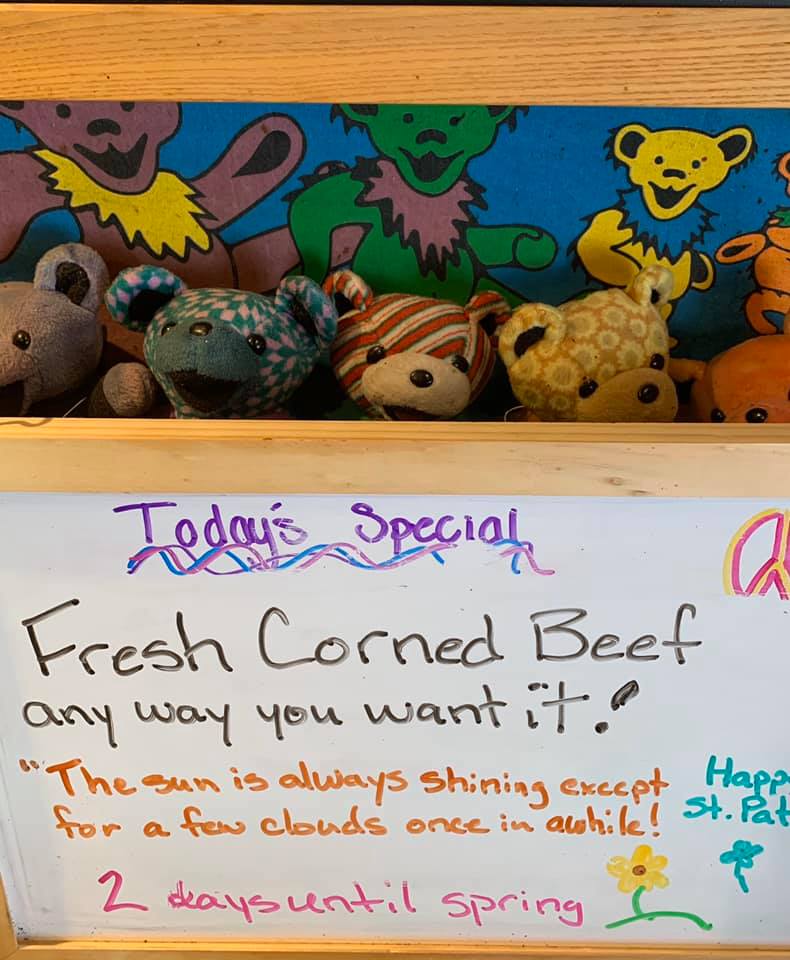 Today's Special
Fresh Corned Beef
any way you want it!
"The sun is always shining except
for a few clouds once in awhile!
Happ
St. Pat
2 days until spring